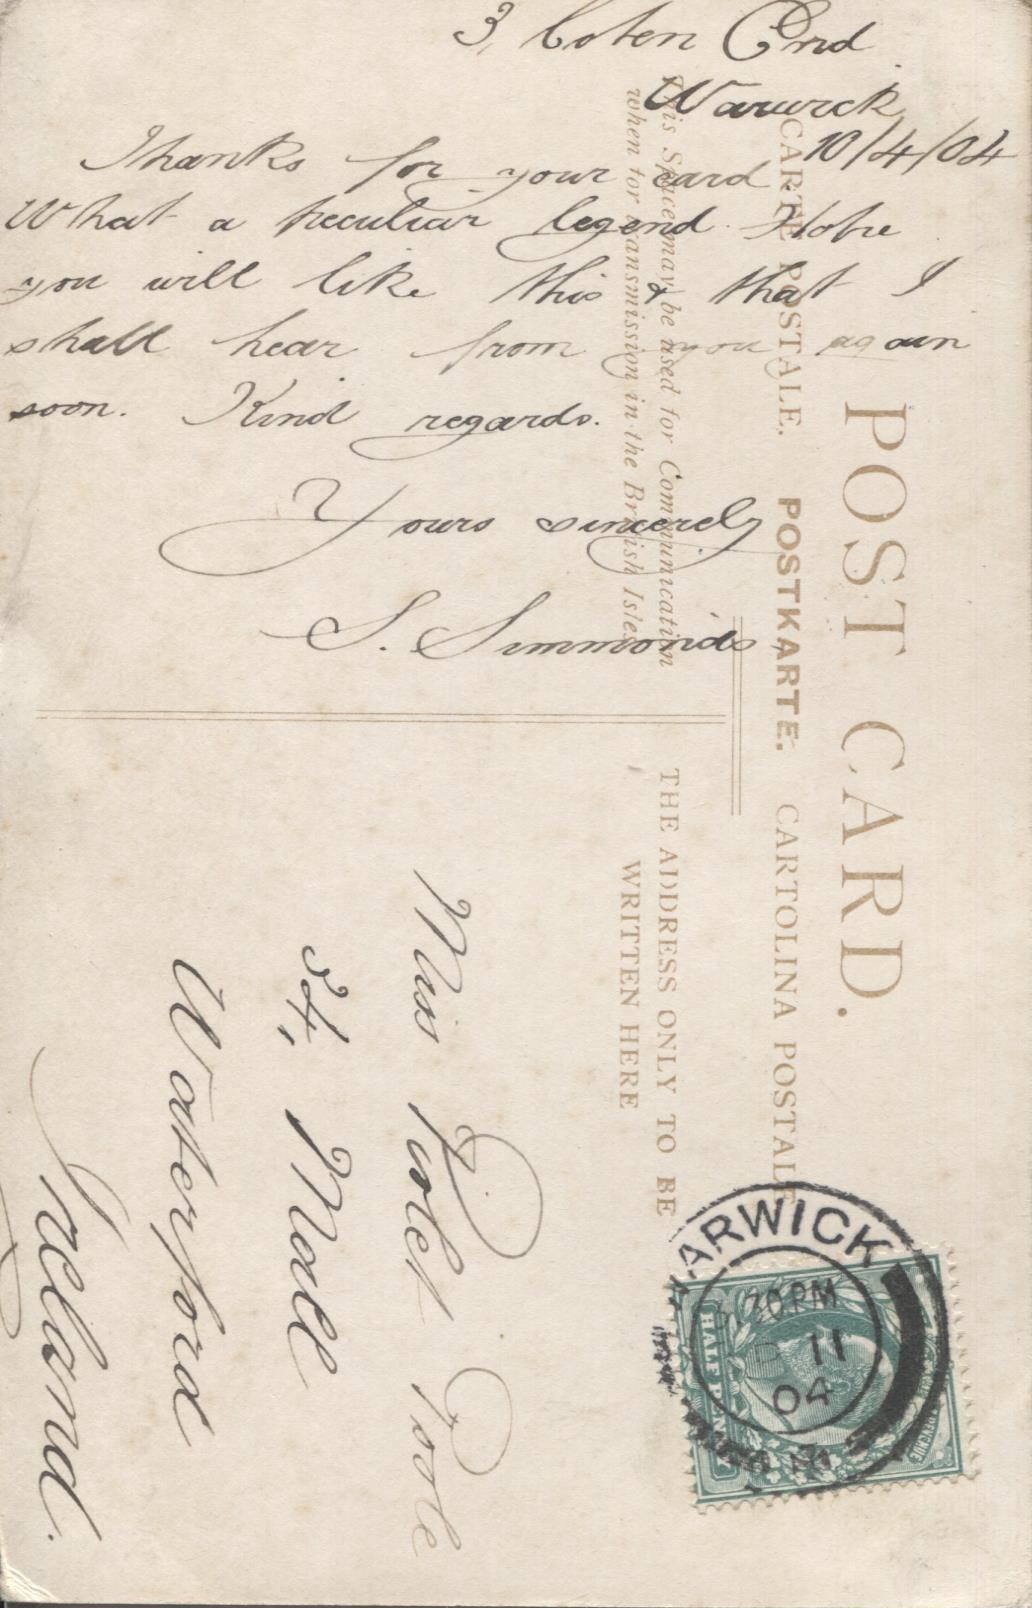 3, Coten End
Warwick
10/4/04
Thanks for your card.
What a peculiar legend. Hope
you will like this & that I
shall hear from you again
soon. Kind regards.
Yours sincerely
S. Simmonds
POST CARD.
CARTE POSTALE. POSTKARTE. CARTOLINA POSTALE
This Space may be used for Communication
when for transmission in the British Isles
THE ADDRESS ONLY TO BE
WRITTEN HERE
Miss Violet Poole
34, Mall
Waterford
Ireland.
WARWICK
30 PM
11
04
HALF PENNY
REVENUE